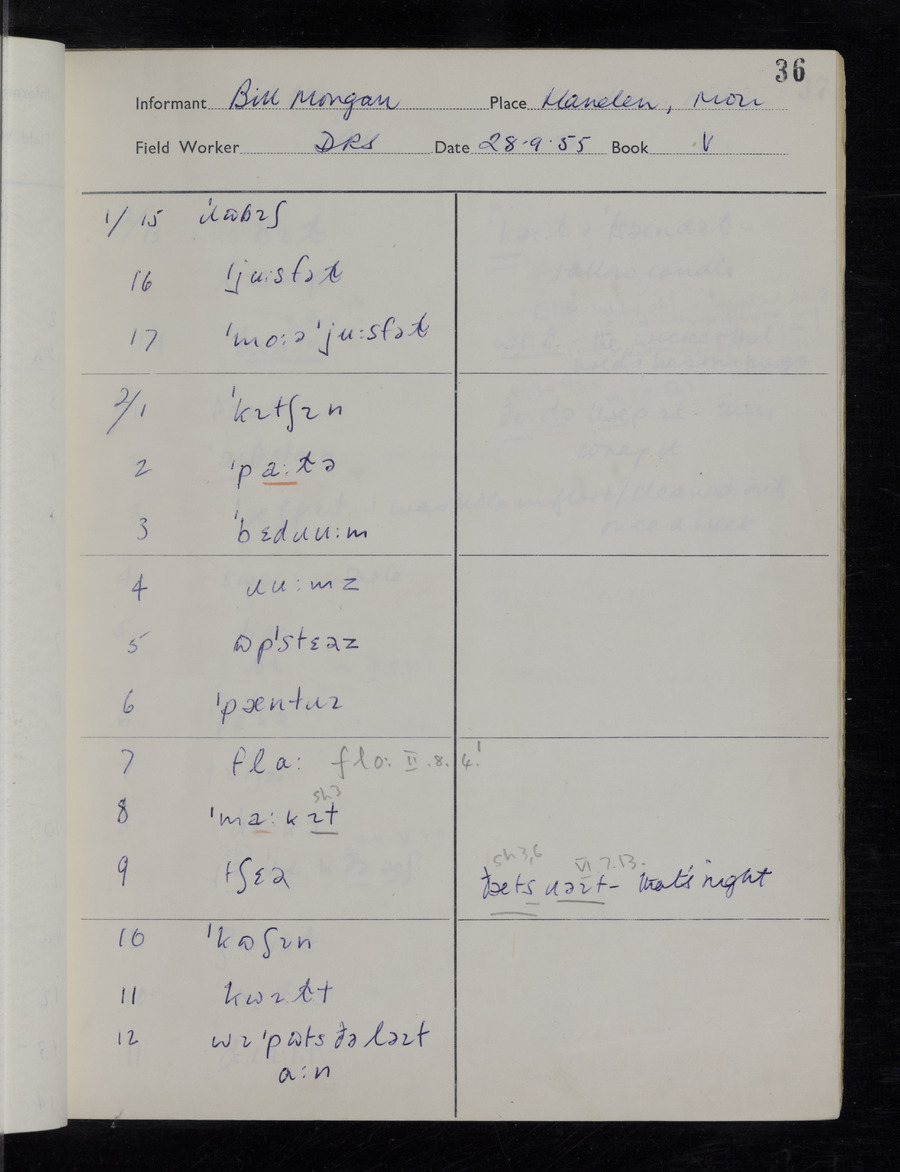 36
Informant Bill Morgan Place Llanelen, Mon
Field Worker DRS Date 28·9·55 Book V
1/15 ˈɹɷbɪʃ
16 ˈjuːsfəɫ
17 ˈmoːə ˈjuːsfəɫ
2/1 ˈkɪtʃɪn
2 ˈpaːɫə
3 ˈbɛdɹuːm
4 ɹuːmz
5 ɷpˈstɛəz
6 ˈpæntɹɪ
7 flaː floː II.8.4!
sh3
8 ˈmaːkɪt
9 tʃɛə
sh3,6 VI 7.13.
ðæts ɹəɪt - that's right
10 ˈkɷʃɪn
11 kwɪɫt
12 wɪ ˈpɷts ðə ləɪt
aːn